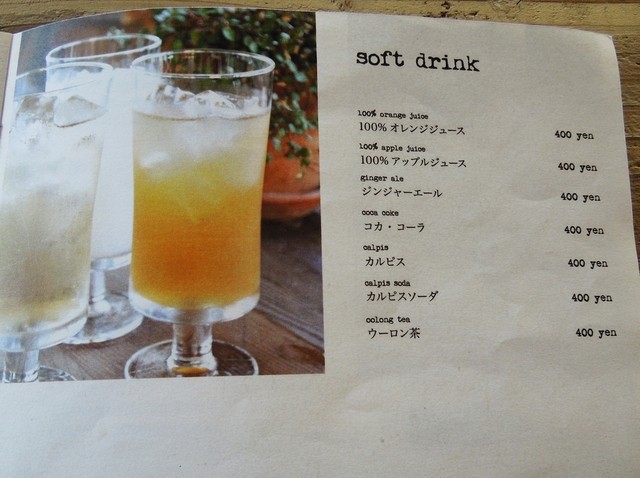 soft drink
100% orange juice
100% オレンジジュース 400 yen
100% apple juice
100% アップルジュース 400 yen
ginger ale
ジンジャーエール 400 yen
coca coke
コカ・コーラ 400 yen
calpis
カルピス 400 yen
calpis soda
カルピスソーダ 400 yen
oolong tea
ウーロン茶 400 yen